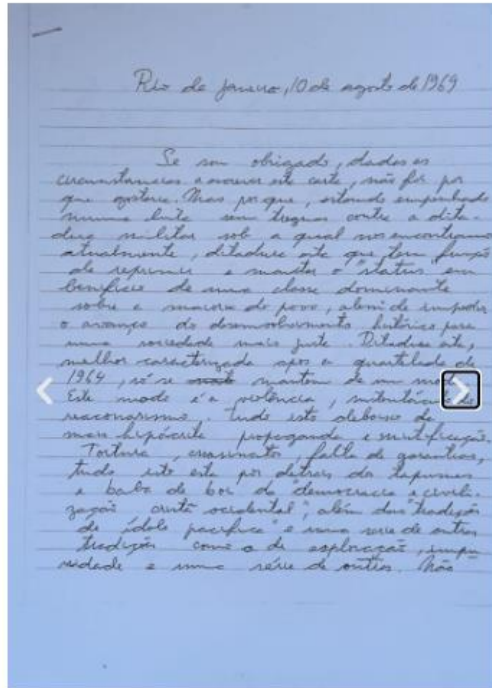 Rio de Janeiro, 10 de agosto de 1969
Se sou obrigado, dadas as
circunstancias a escrever esta carta, não foi por
que gostaria. Mas por que, estando empenhado
numa luta sem treguas contra a dita-
dura militar sob a qual nos encontramos
atualmente, ditadura esta que tem função
de represar e manter o status em
beneficio de uma classe dominante
sobre a maioria do povo, alem de impedir
o avanço do desenvolvimento histórico para
uma sociedade mais justa. Ditadura esta,
melhor caracterizada apos a quartelada de
1964, só se mantem de um
Este modo é a violência,
reacionarismo. Tudo isto debaixo da
mais hipócrita propaganda e mistificação.
Tortura, assassinatos, falta de garantias,
tudo isto esta por detras dos tapumes
e baba de boi da "democracia e civili-
zação cristã ocidental", além das "tradições
de indole pacifica" e uma serie de outras
tradições como a de exploração,
e uma série de outras. Não